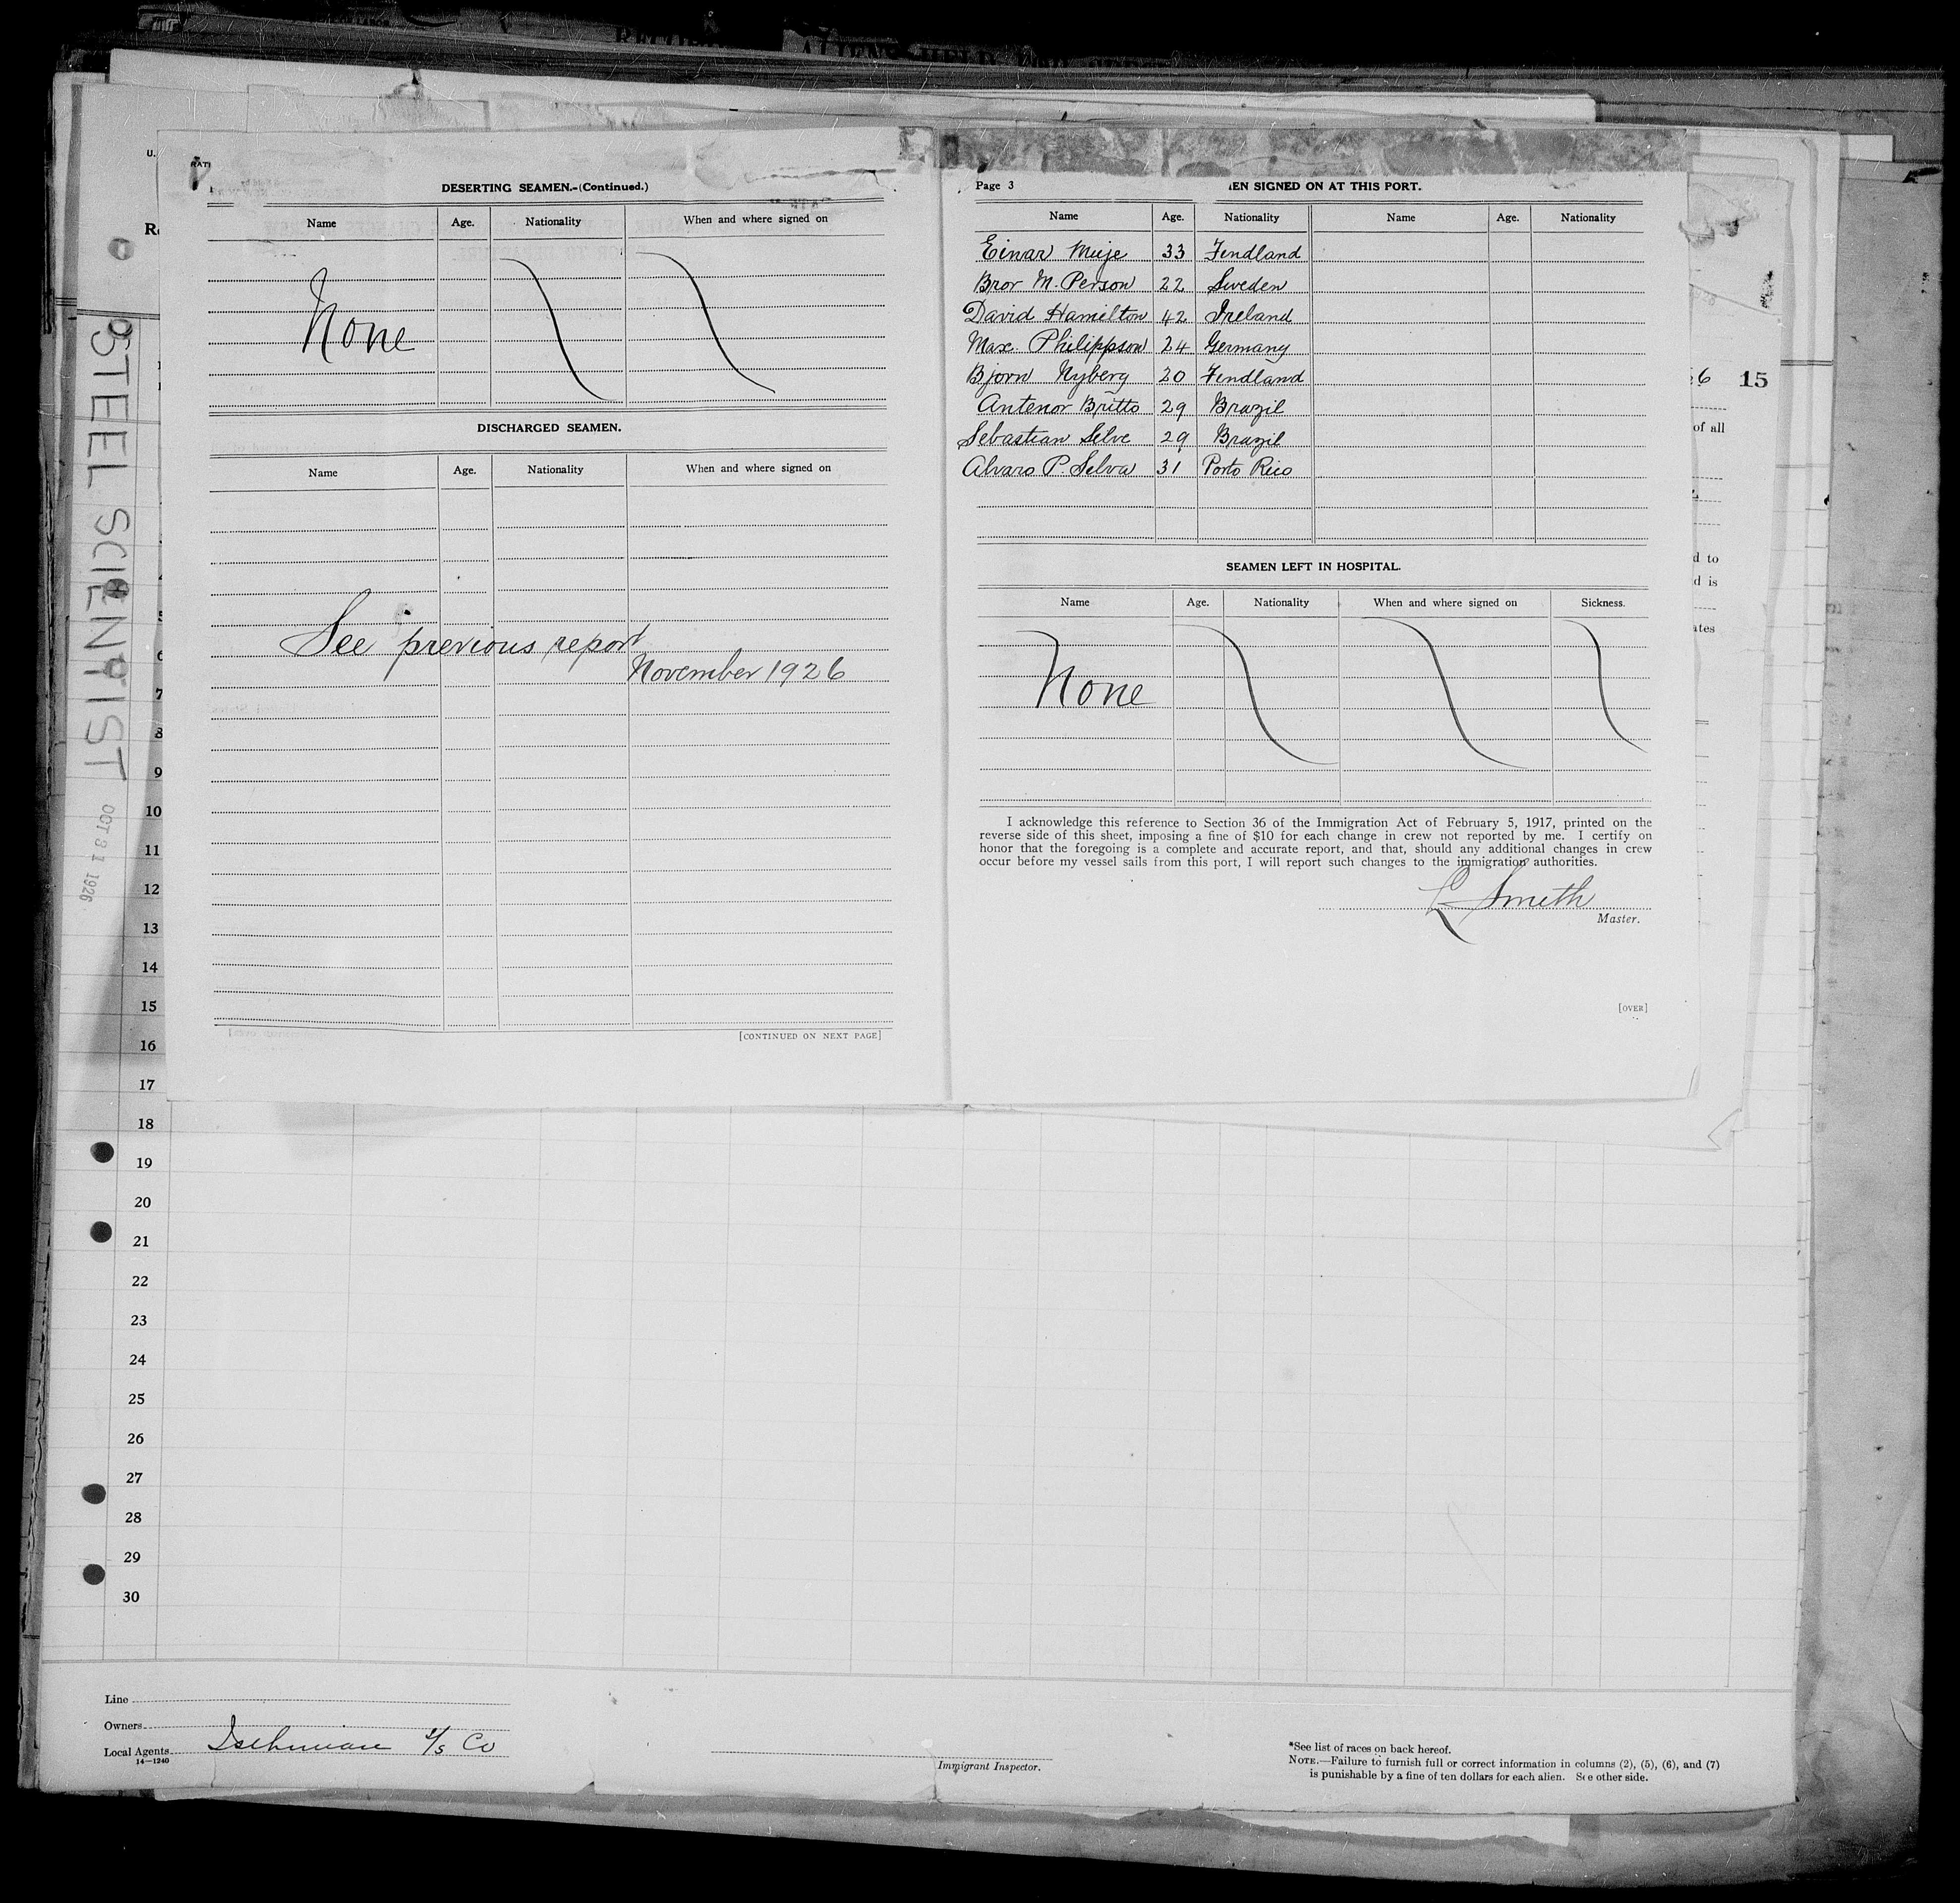 DESERTING SEAMEN.-(Continued.)
Name Age. Nationality When and where signed on
None
DISCHARGED SEAMEN.
Name Age. Nationality When and where signed on
See previous report
November 1926
[CONTINUED ON NEXT PAGE]
Page 3 EN SIGNED ON AT THIS PORT.
Name Age. Nationality Name Age. Nationality
Einar Meije 33 Findland
Bror M. Person 22 Sweden
David Hamilton 42 Ireland
Max. Philippson 24 Germany
Bjorn Nyberg 20 Findland
Antenor Britto 29 Brazil
Sebastian Selve 29 Brazil
Alvaro P. Selva 31 Porto Rico
SEAMEN LEFT IN HOSPITAL.
Name Age. Nationality When and where signed on Sickness.
None
I acknowledge this reference to Section 36 of the Immigration Act of February 5, 1917, printed on the
reverse side of this sheet, imposing a fine of $10 for each change in crew not reported by me. I certify on
honor that the foregoing is a complete and accurate report, and that, should any additional changes in crew
occur before my vessel sails from this port, I will report such changes to the immigration authorities.
L Smith
Master.
[OVER]
STEEL SCIENTIST
OCT 31 1926
6 15
of all
d to
d is
ates
5
6
7
8
9
10
11
12
13
14
15
16
17
18
19
20
21
22
23
24
25
26
27
28
29
30
Line
Owners
Local Agents Isthmian S/S Co
14—1240
Immigrant Inspector.
*See list of races on back hereof.
NOTE.—Failure to furnish full or correct information in columns (2), (5), (6), and (7)
is punishable by a fine of ten dollars for each alien. See other side.